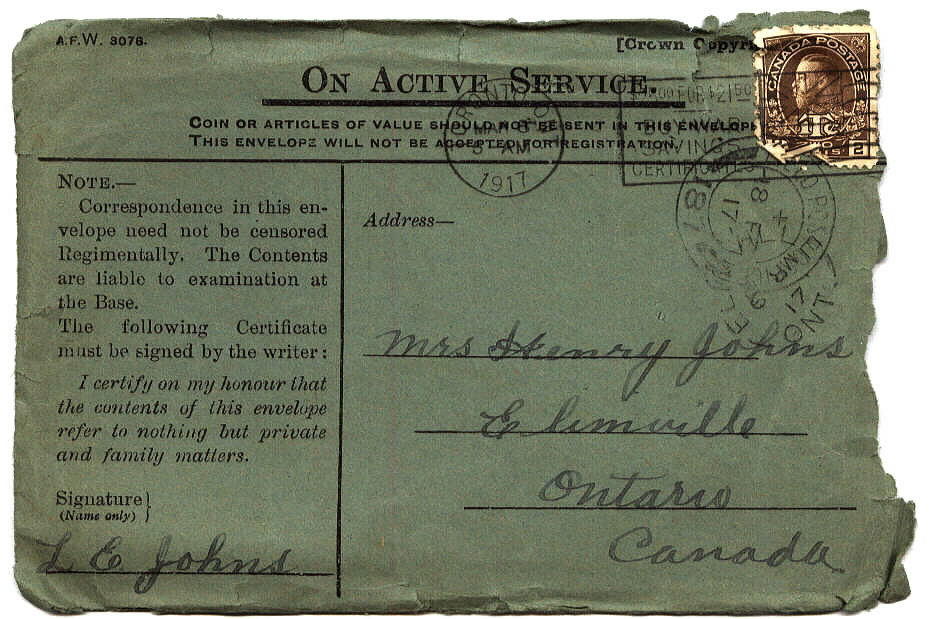 A.F.W. 3076.
[Crown Copyri
ON ACTIVE SERVICE.
COIN OR ARTICLES OF VALUE SHOULD NOT BE SENT IN THIS ENVELOPE
THIS ENVELOPE WILL NOT BE ACCEPTED FOR REGISTRATION.
CANADA POSTAGE
2
MAR 8
5 AM
1917
SAVINGS
CERTIFICATES
NOTE.—
Correspondence in this en-
velope need not be censored
Regimentally. The Contents
are liable to examination at
the Base.
The following Certificate
must be signed by the writer:
I certify on my honour that
the contents of this envelope
refer to nothing but private
and family matters.
Signature}
(Name only)
L E Johns
Address—
Mrs Henry Johns
Elimville
Ontario
Canada